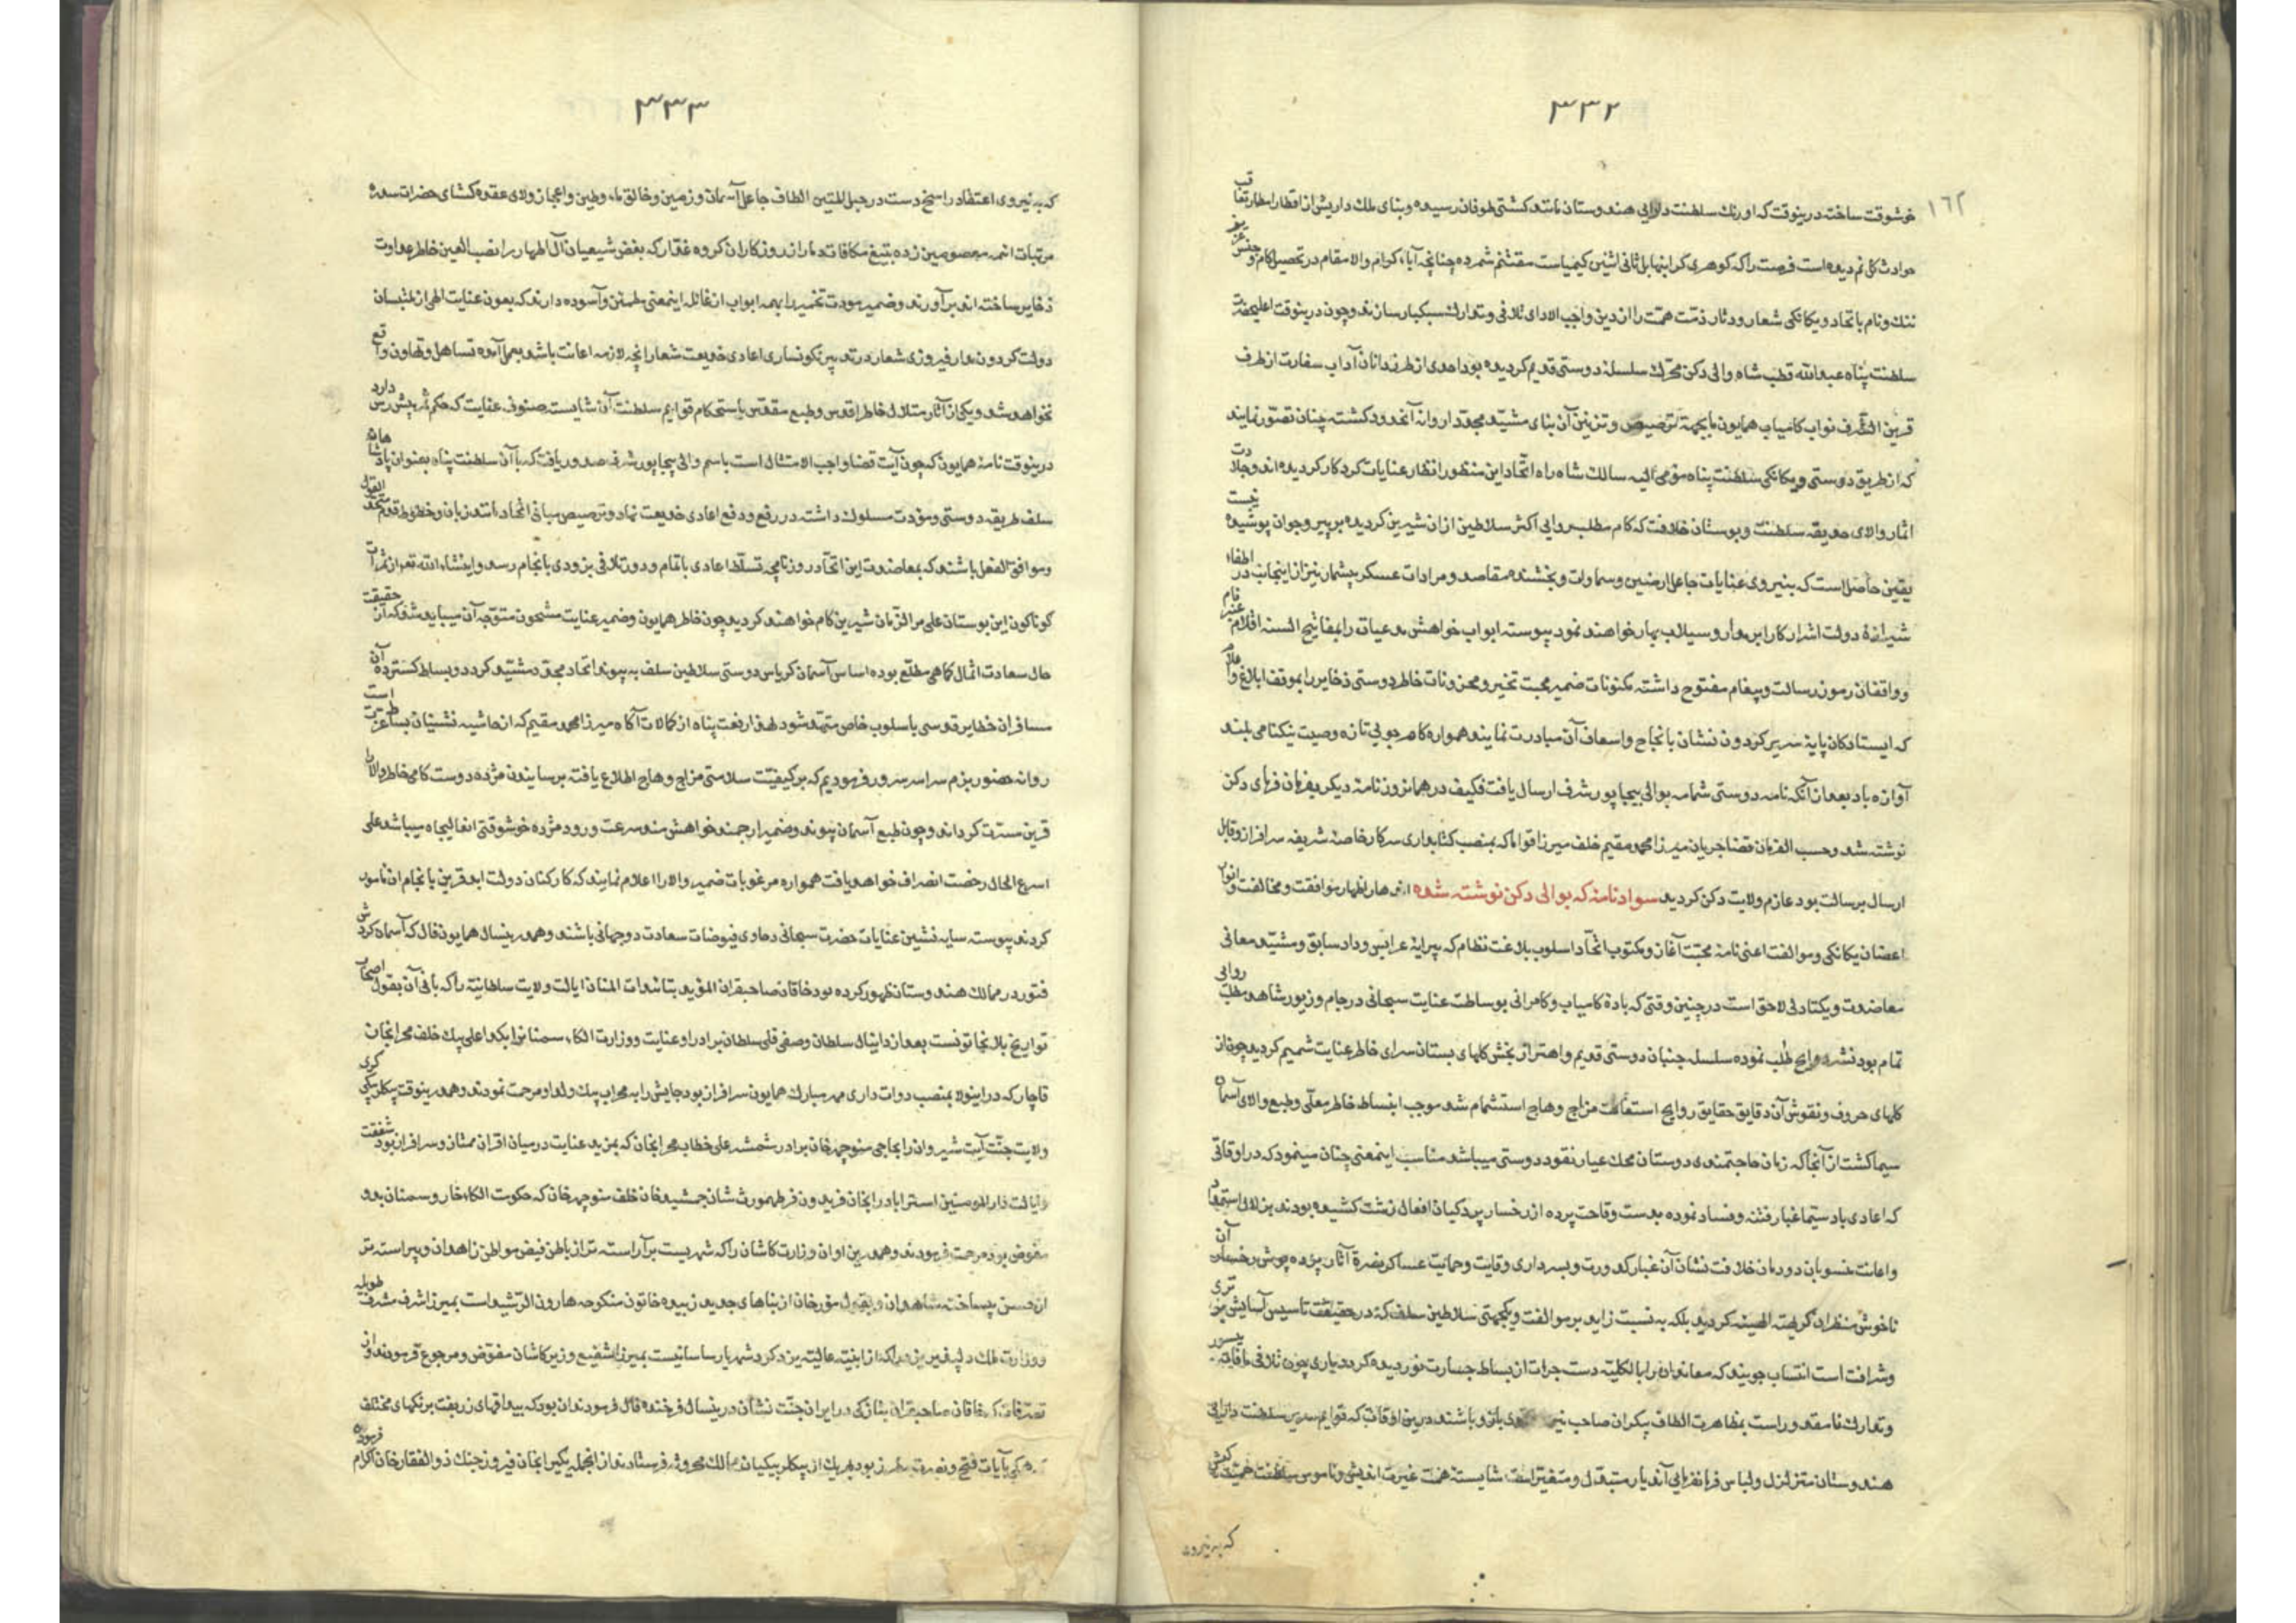 ۳۳۲
۱۶۲
خوشوقت ساخت درینوقت که اورنك سلطنت دارایی هندوستان مانند کشتی طوفان رسیده و بنای ملك داریش از اقطار امطار تعاقب
حوادث کل نم دیده است فرصت را که کوهری کرانبها بل ثانی اثنین کیمیاست مغتنم شمرده چنانچه آباء کرام والا مقام در تحصیل کام و
ننك و نام باتحاد و یکانکی شعار و دثار ذمت همت را از دین واجب الادای تلافی و تدارك سبکبار سازند و چون درینوقت اعلیحضرت
سلطنت پناه عبدالله قطب شاه والی دکن محرك سلسله دوستی قدیم کردیده بود احدی از طرزدانان آداب سفارت از طرف
قرین الشرف نواب کامیاب همایون ما بجهة ترصیص و تزیین آن بنای مشید مجددا روانه آنحدود کشته چنان تصور نمایند
که از طریق دوستی و یکانکی سلطنت پناه مومی الیه سالك شاه راه اتحاد این منظور انظار عنایات کردکار کردیده اند و حلاوت
اثمار والای حدیقه سلطنت و بوستان خلافت که کام مطلب روایی اکثر سلاطین از ان شیرین کردیده بر پیر و جوان پوشیده نیست
یقین حاصل است که بنیروی عنایات جاعل ارضین و سماوات و بخشنده مقاصد و مرادات عسکر بیشمار نیز از اینجانب در اطفاء
شیرازۀ دولت اشرار کار ابر مدرار و سیلاب بهار خواهند نمود پیوسته ابواب خواهش مدعیات را بمفاتیح السنه اقلام
و واقفان رموز رسالت و پیغام مفتوح داشته مکنونات ضمیر محبت تخمیر و مخزونات خاطر دوستی ذخایر را بموقف ابلاغ و اعلام
که ایستادکان پایۀ سریر کردون نشان بانجاح و اسعاف آن مبادرت نمایند همواره کامرجویی تازه وصیت نیکنامی بلند
آوازه باد بعد از آنکه نامه دوستی شمامه بوالی بیجاپور شرف ارسال یافت فکیف در همانروز نامۀ دیکر بفرمان فرمای دکن
نوشته شد و حسب الفرمان قضا جریان میرزا محمد مقیم خلف میرزا قواما که بمنصب کتابداری سرکار خاصۀ شریفه سرافراز و قابل
ارسال برسالت بود عازم ولایت دکن کردید سواد نامۀ که بوالی دکن نوشته شده ازهار اظهار موافقت و مخالفت و انوار
اغصان یکانکی و موالفت اعنی نامۀ محبت آغاز و مکتوب اتحاد اسلوب بلاغت نظام که پیرایۀ عرایس وداد سابق و مشید معانی
معاضدت و یکتادلی لاحق است در چنین وقتی که بادۀ کامیاب و کامرانی بوساطت عنایت سبحانی در جام و زیور شاهد مطلب روایی
تمام بود نشر روایح طلب نموده سلسله جنبان دوستی قدیم و اهتراز بخش کلهای بستان سرای خاطر عنایت شمیم کردید چون از
کلهای حروف و نقوش آن دقایق حقایق روایح استقامت مزاج وهاج استشمام شد موجب انبساط خاطر معلی و طبع والای آسمان
سیما کشت از آنجا که زمان حاجتمندی دوستان محك عیار نقود دوستی میباشد مناسب اینمعنی چنان مینمود که در اوقاتی
که اعادی بادستیما غبار فتنه و فساد نموده بدست وقاحت پرده از رخسار پردکیان افعال زشت کشیده بودند بزلال استمداد
و اعانت منسوبان دودمان خلافت نشان آن غبار کدورت و بسرداری وقایت و حمایت عساکر نصرة آثار پرده پوش رخسار آن
ناخوش منظران کریهة الهیئه کردید بلکه به نسبت زاید بر موالفت و یکجهتی سلاطین سلف که در حقیقت تاسیس آسایش
و شرافت است انتساب جویند که معاندان را بالکلیه دست جرات از بساط جسارت نوردیده کردد باری چون تلافی مافات
و تدارك نامقدور است بمظاهرت الطاف بیکران صاحب بازو باشند درین اوقات که قوایم سریر سلطنت دارایی
هندوستان متزلزل و لباس فرمانفرمایی آندیار متبدل و متغیر است شایسته همت غیرت اندیش و ناموس سلطنت
که به نیروی
۳۳۳
که به نیروی اعتقاد راسخ دست در حبل المتین الطاف جاعل آسمان و زمین و خالق ماء وطین و اعجاز ولای عقده کشای حضرات سدره
مرتبات ائمه معصومین زده بتیغ مکافات دمار از روزکار ان کروه غدار که بغض شیعیان آل اطهار را نصب العین خاطر عداوت
ذخایر ساخته اند برآورند و ضمیر مودت تخمیر را بهمه ابواب از غائله اینمعنی مطمئن و آسوده دارند که بعون عنایت الهی از منتسبان
دولت کردون مدار فیروزی شعار در تدبیر نکونساری اعادی خدیعت شعار آنچه لازمه اعانت باشد بعمل آمده تساهل و تهاون واقع
نخواهد شد و یکی از آثار متلالی خاطر اقدس و طبع مقدس باستحکام قوایم سلطنت آن شایسته صنوف عنایت که حکم شریعتش دارد
درینوقت نامۀ همایون که چون آیت قضا واجب الامتثال است باسم والی بیجاپور شرف صدور یافت که با آن سلطنت پناه بعنوان پادشاهان
سلف طریقه دوستی و مودت مسلوك داشته در رفع و دفع اعادی خدیعت نهاد و ترصیص مبانی اتحاد مانند زبان و خطوط قوم متحد القول
و موافق الفعل باشند که بمعاضدت این اتحاد روزنامچه تسلط اعادی باتمام و دور تلافی بزودی بانجام رسد و اینشاء الله تعم از ثمرات
کوناکون این بوستان علی مر الزمان شیرین کام خواهند کردید چون خاطر همایون و ضمیر عنایت مشحون متوجه آن میباید شد که از حقیقت
حال سعادت اثمال کاهی مطلع بوده اساس آسمان کریاس دوستی سلاطین سلف به پیوند اتحاد مجدد مشید کردد و بساط کسترده آن
مسافران خطایر قدوسی باسلوب خاص متمهد شود لهذا رفعت پناه از کمالات آکاه میرزا محمد مقیم که از حاشیه نشینان بساط عزت است
روانه حضور بزم سراسر سرور فرمودیم که بر کیفیت سلامتی مزاج وهاج اطلاع یافته برسانیدن مژده دوست کامی خاطر والا را
قرین مسرت کرداند و چون طبع آسمان پیوند و ضمیر ارجمند خواهش مند سرعت ورود مژده خوشوقتی انعالیجاه میباشد علی
اسرع الحال رخصت انصراف خواهد یافت همواره مرغوبات ضمیر والا را اعلام نمایند که کارکنان دولت ابد قرین بانجام ان مامور
کردند پیوسته سایه نشین عنایات حضرت سبحانی و حاوی فیوضات سعادت دوجهانی باشند و هم درینسال همایون فال که آسمان کردش
فتور در ممالك هندوستان ظهور کرده بود خاقان صاحبقران المؤید بتائیدات المنان ایالت ولایت سلطانیه را که بانی آن بقول اصحاب
تواریخ بلانجاتونست بعد از دانیال سلطان و صفی قلی سلطان برادر او عنایت و وزارت الکاء سمنان را بکدا علی بیك خلف محرابخان
قاچار که در اینولا بمنصب دوات داری مهر مبارك همایون سرافراز بود جایش را به محراب بیك ولد او مرحمت نمودند و هم درینوقت بیکلربیکی کری
ولایت جنت آیت شیروان را بحاجی منوچهر خان برادر شمشه علی خطاب محرابخان که بمزید عنایت در میان اقران ممتاز و سرافراز بود شفقت
و ایالت دار المومنین استراباد را بخان فریدون فر طهمورث شان جمشید خان خلف منوچهر خان که حکومت الکاء خار و سمنان بدو
مفوض بود مرحمت فرمودند و هم درین اوان وزارت کاشان را که شهریست برآراسته تر از باطن فیض مواطن زاهدان و پیراسته تر
از حسن بیساخته شاهدان و بقول مورخان از بناهای جدید زبیده خاتون منکوحه هارون الرشید است بمیرزا شرف مشرف طویله
و وزارت ملك دلپذیر یزد را که از ابنیه عالیه یزدکرد شهریار ساسانیست بمیرزا شفیع وزیر کاشان مفوض و مرجوع فرمودند و از
تصرفات که خاقان صاحبقران بتازکی در ایران جنت نشان درینسال فرخنده فال فرمودند ان بود که بیداقهای زربفت برنکهای مختلف
بآیات فتح و نصرت مطرز بود بهریك از بیکلربیکیان ممالك محروسه فرستادند از انجمله یکی را بخان فیروز جنك ذوالفقار خان اکرام فرموده